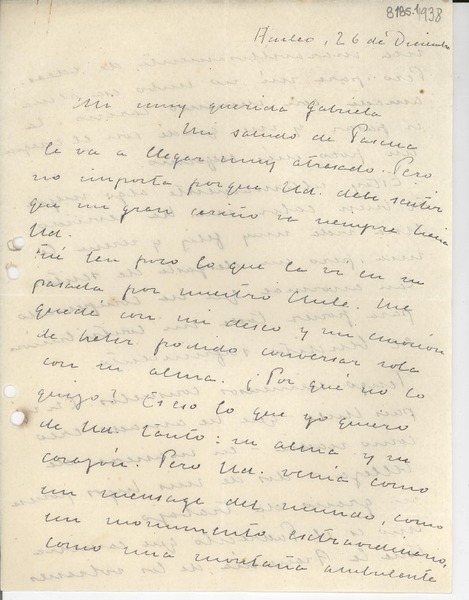 8185.1938
26 de Diciembre
Mi muy querida Gabriela
Mi saludo de Pascua
le va a llegar muy atrasado. Pero
no importa porque Ud. debe sentir
que mi gran cariño va siempre hacia
Ud.
Fué tan poco lo que la vi en su
pasada por nuestro Chile. Me
quedé con mi deseo y mi emoción
de haber podido conversar sola
con su alma. ¿Por qué no lo
quizo? Es eso lo que yo quiero
de Ud. tanto: su alma y su
corazón. Pero Ud. venía como
un mensage del mundo, como
un monumento extraordinario,
como una montaña ambulante